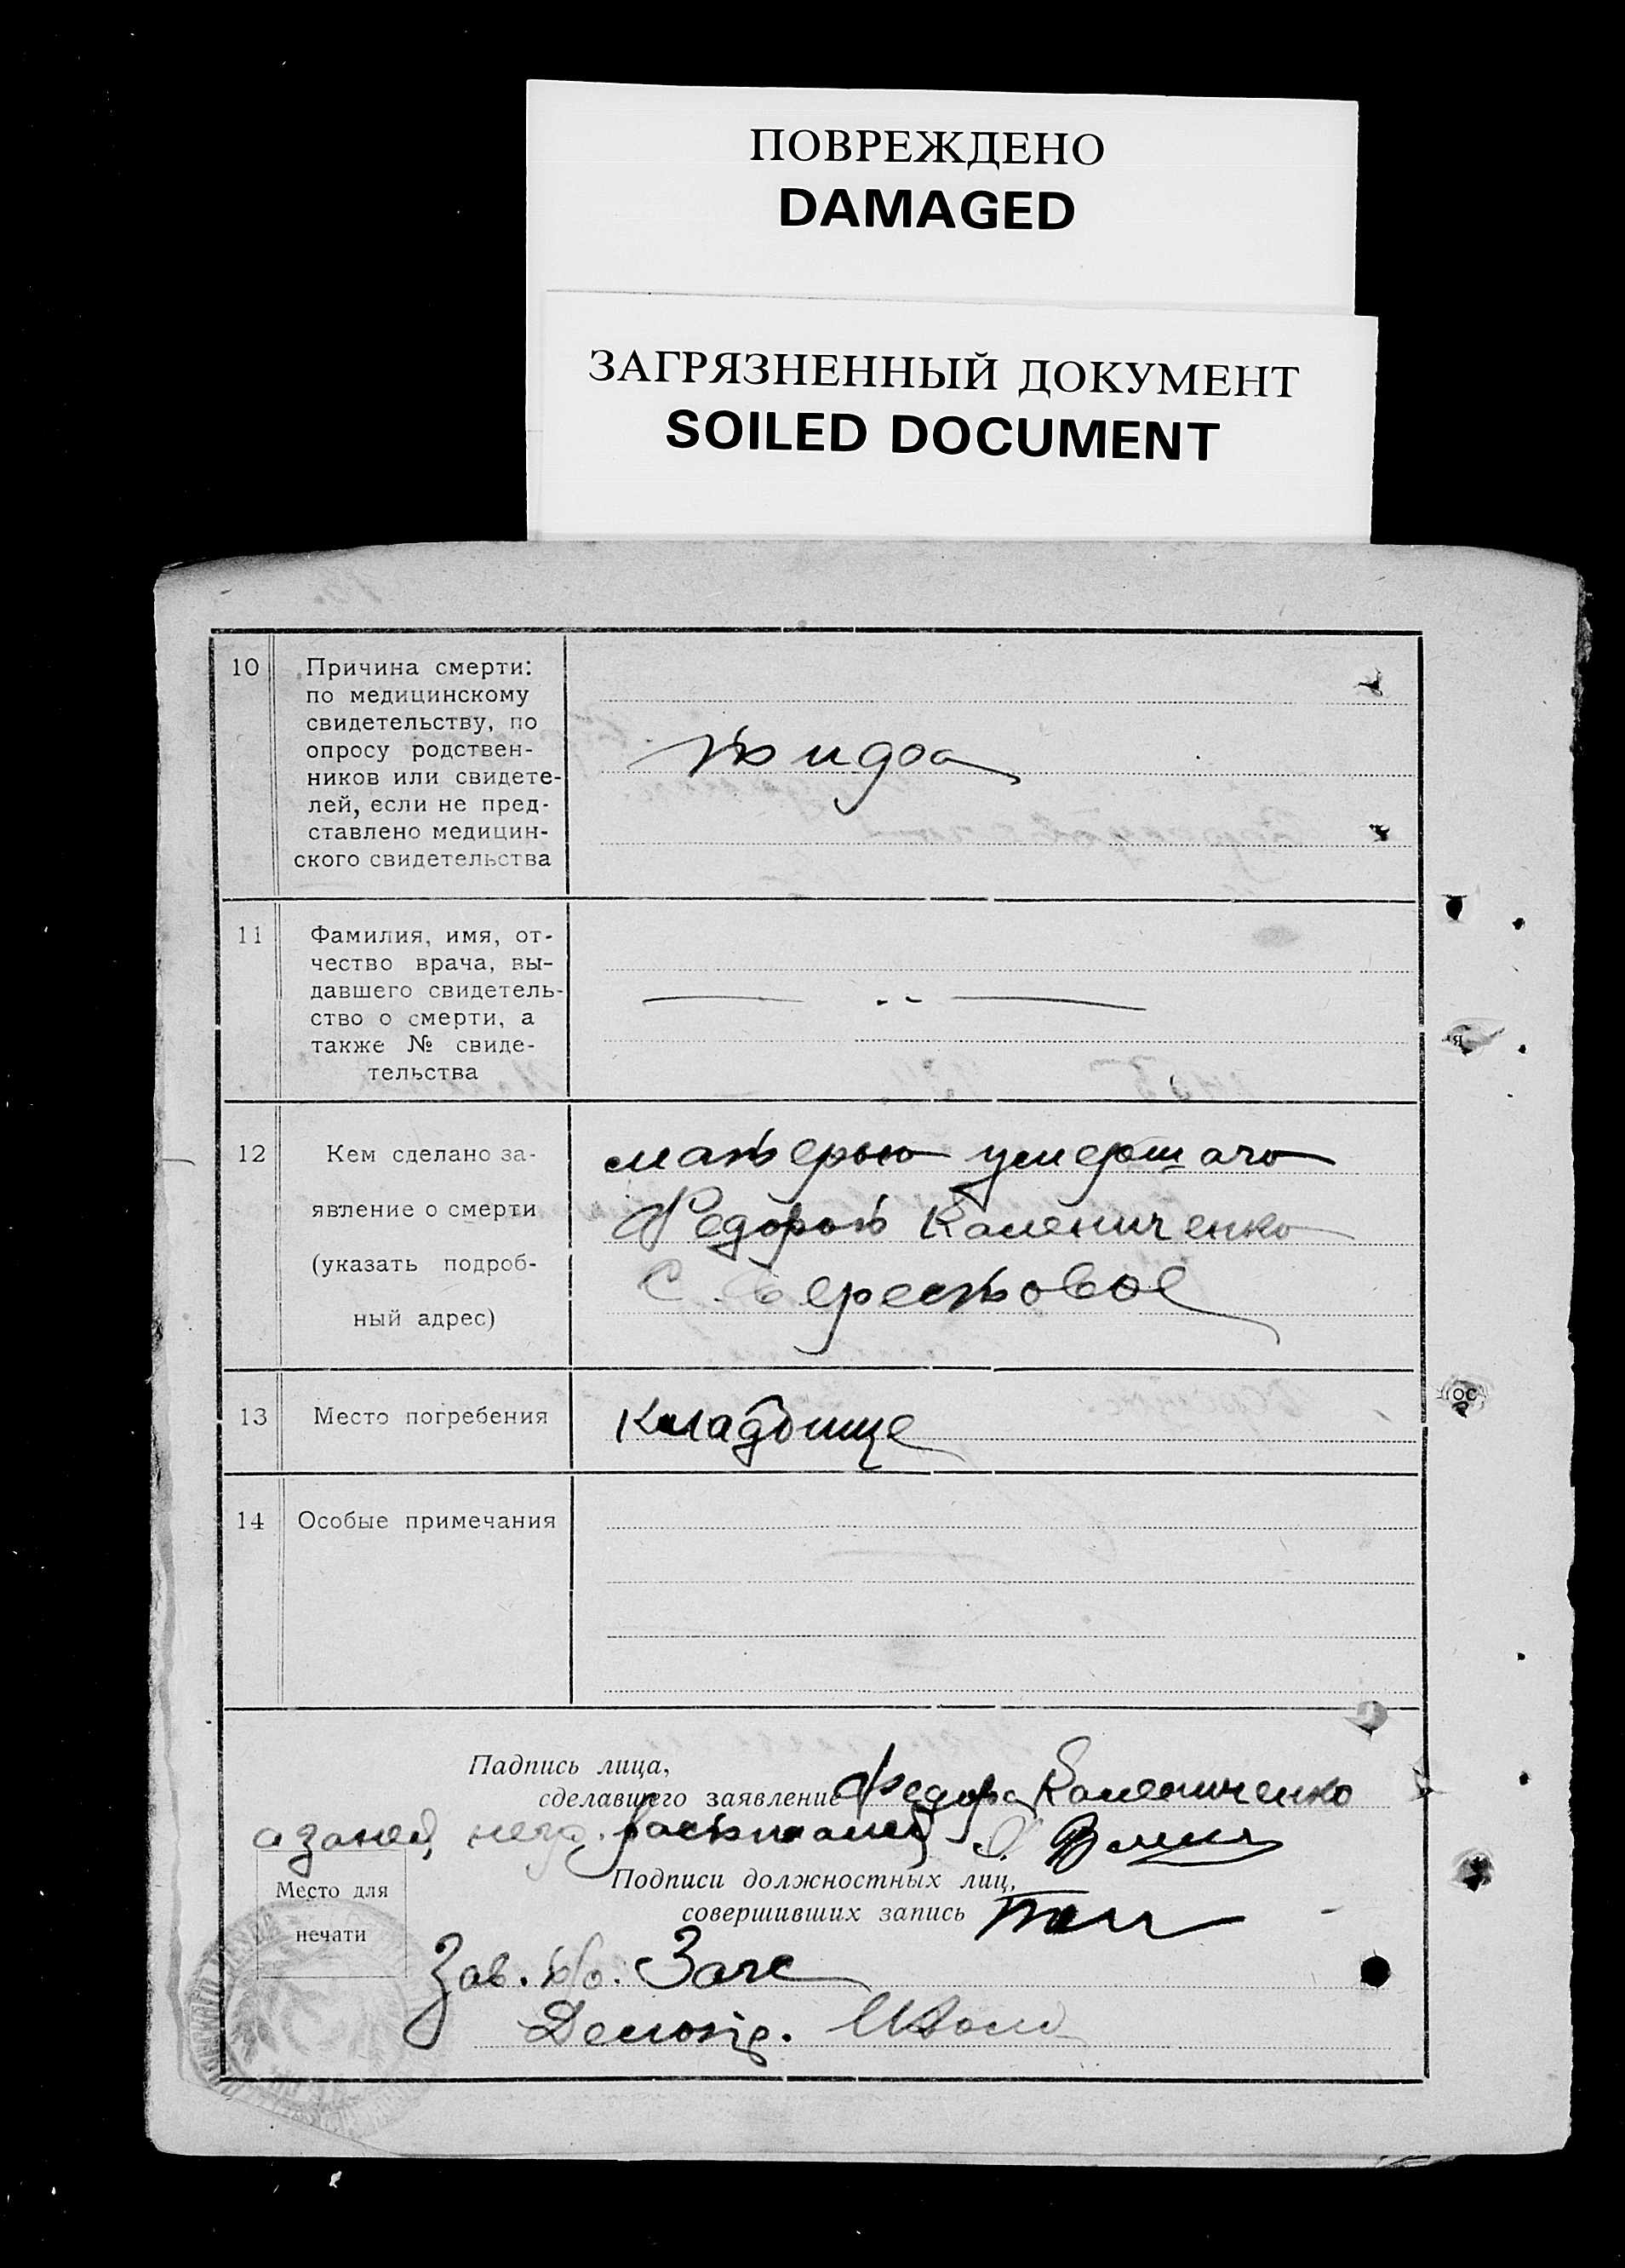 ПОВРЕЖДЕНО
DAMAGED
ЗАГРЯЗНЕННЫЙ ДОКУМЕНТ
SOILED DOCUMENT
10 Причина смерти:
по медицинскому
свидетельству, по
опросу родствен-
ников или свидете-
лей, если не пред-
ставлено медицин-
ского свидетельства
11 Фамилия, имя, от-
чество врача, вы-
давшего свидетель-
ство о смерти, а
также № свиде-
тельства
12 Кем сделано за-
явление о смерти
(указать подроб-
ный адрес)
матерью умершаго
Федорой Калениченко
С. Берестовое
13 Место погребения
Кладбище
14 Особые примечания
Падпись лица,
сделавшего заявление Федора Калениченко
а за ней негр. расписалась
Место для
печати
Подписи должностных лиц,
совершивших запись
Зав. б/о. Загс